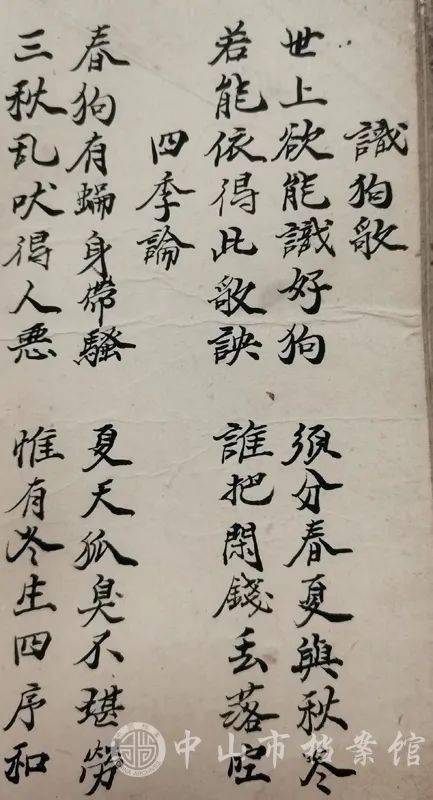 識狗歌
世上欲能識好狗 須分春夏與秋冬
若能依得此歌訣 誰把閑錢丢落空
四季論
春狗有蝻身帶騷 夏天狐臭不堪勞
三秋乱吠得人惡 惟有冬生四序和
中山市档案馆